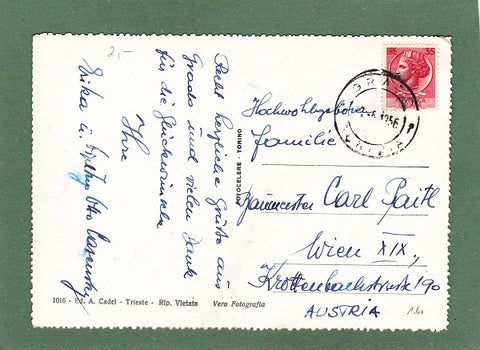 2,-
Recht herzliche Grüße aus
Grado und vielen Dank
für die Glückwünsche
Ihre
Erika u. Otto
FOTOCELERE - TORINO
35
GRADO
1956
Hochwohlgeboren
Familie
Baumeister Carl
Wien XIX,
Krottenbachstrasse 190
AUSTRIA
1016 - Ed. A. Cadel - Trieste - Rip. Vietata Vera Fotografia